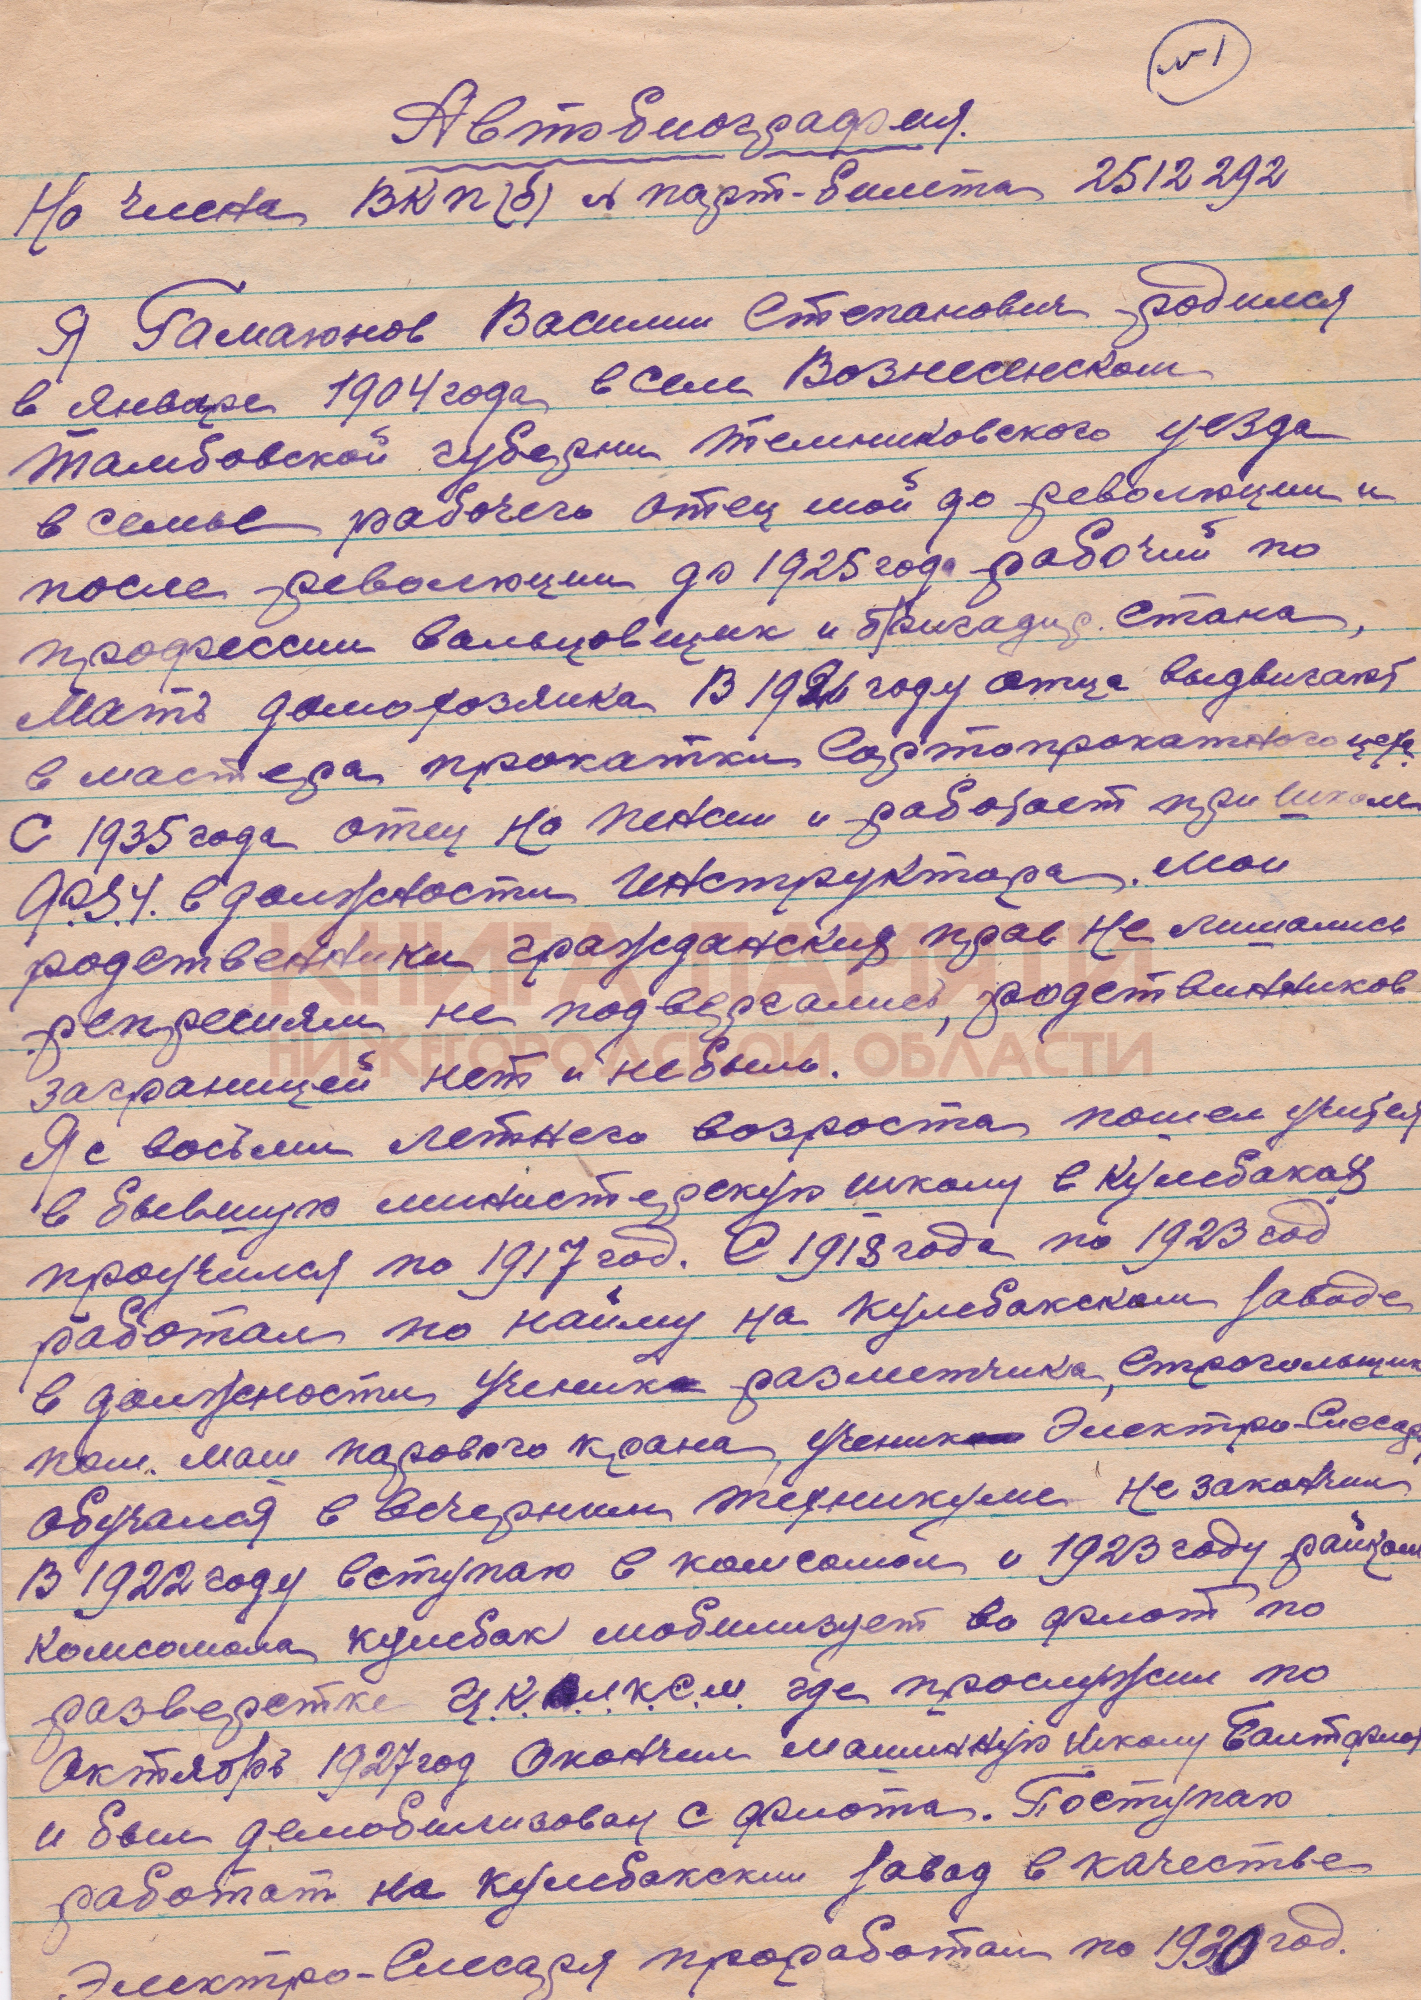 №1
Автобиография.
На члена ВКП(б) № парт-билета 2512292
Я Гамаюнов Василии Степанович родился
в январе 1904 года в селе Вознесенском
тамбовской губерни темниковского уезда
в семье рабочего отец мой до революции и
после революции до 1925 года рабочий по
профессии вальцовщик и бригадир стана,
Мать домохозяика В 1926 году отца выдвигают
в мастера прокатки Сортопрокатного цеха.
С 1935 года отец на пенсии и работает при школе
Ф.З.У. в должности инструктора. Мои
родственники гражданских прав не лишались
репресиям не подвергались, родствинников
заграницей нет и небыло.
Я с восьми летнего возроста пошел учится
в бывшую министерскую школу в Кулебаках
проучился по 1917 год. С 1918 года по 1923 год
работал по найму на Кулебакском заводе
в должности ученик разметчика, строгольщик
пом. маш парового крана, ученик Электро-Слесаря
обучался в вечернем техникуме не закончил
В 1922 году вступаю в комсомол и 1923 году райком
комсомола кулебак мобилизует во флот по
разверстке Ц.К. Л.К.С.М. где прослужил по
Октябрь 1927 год Окончил машинную школу Балтфлота
и был демобилизован с флота. Поступаю
работат на кулебакскии завод в качестве
Электро-Слесаря проработал по 1930 год.
КНИГА ПАМЯТИ
НИЖЕГОРОДСКОЙ ОБЛАСТИ